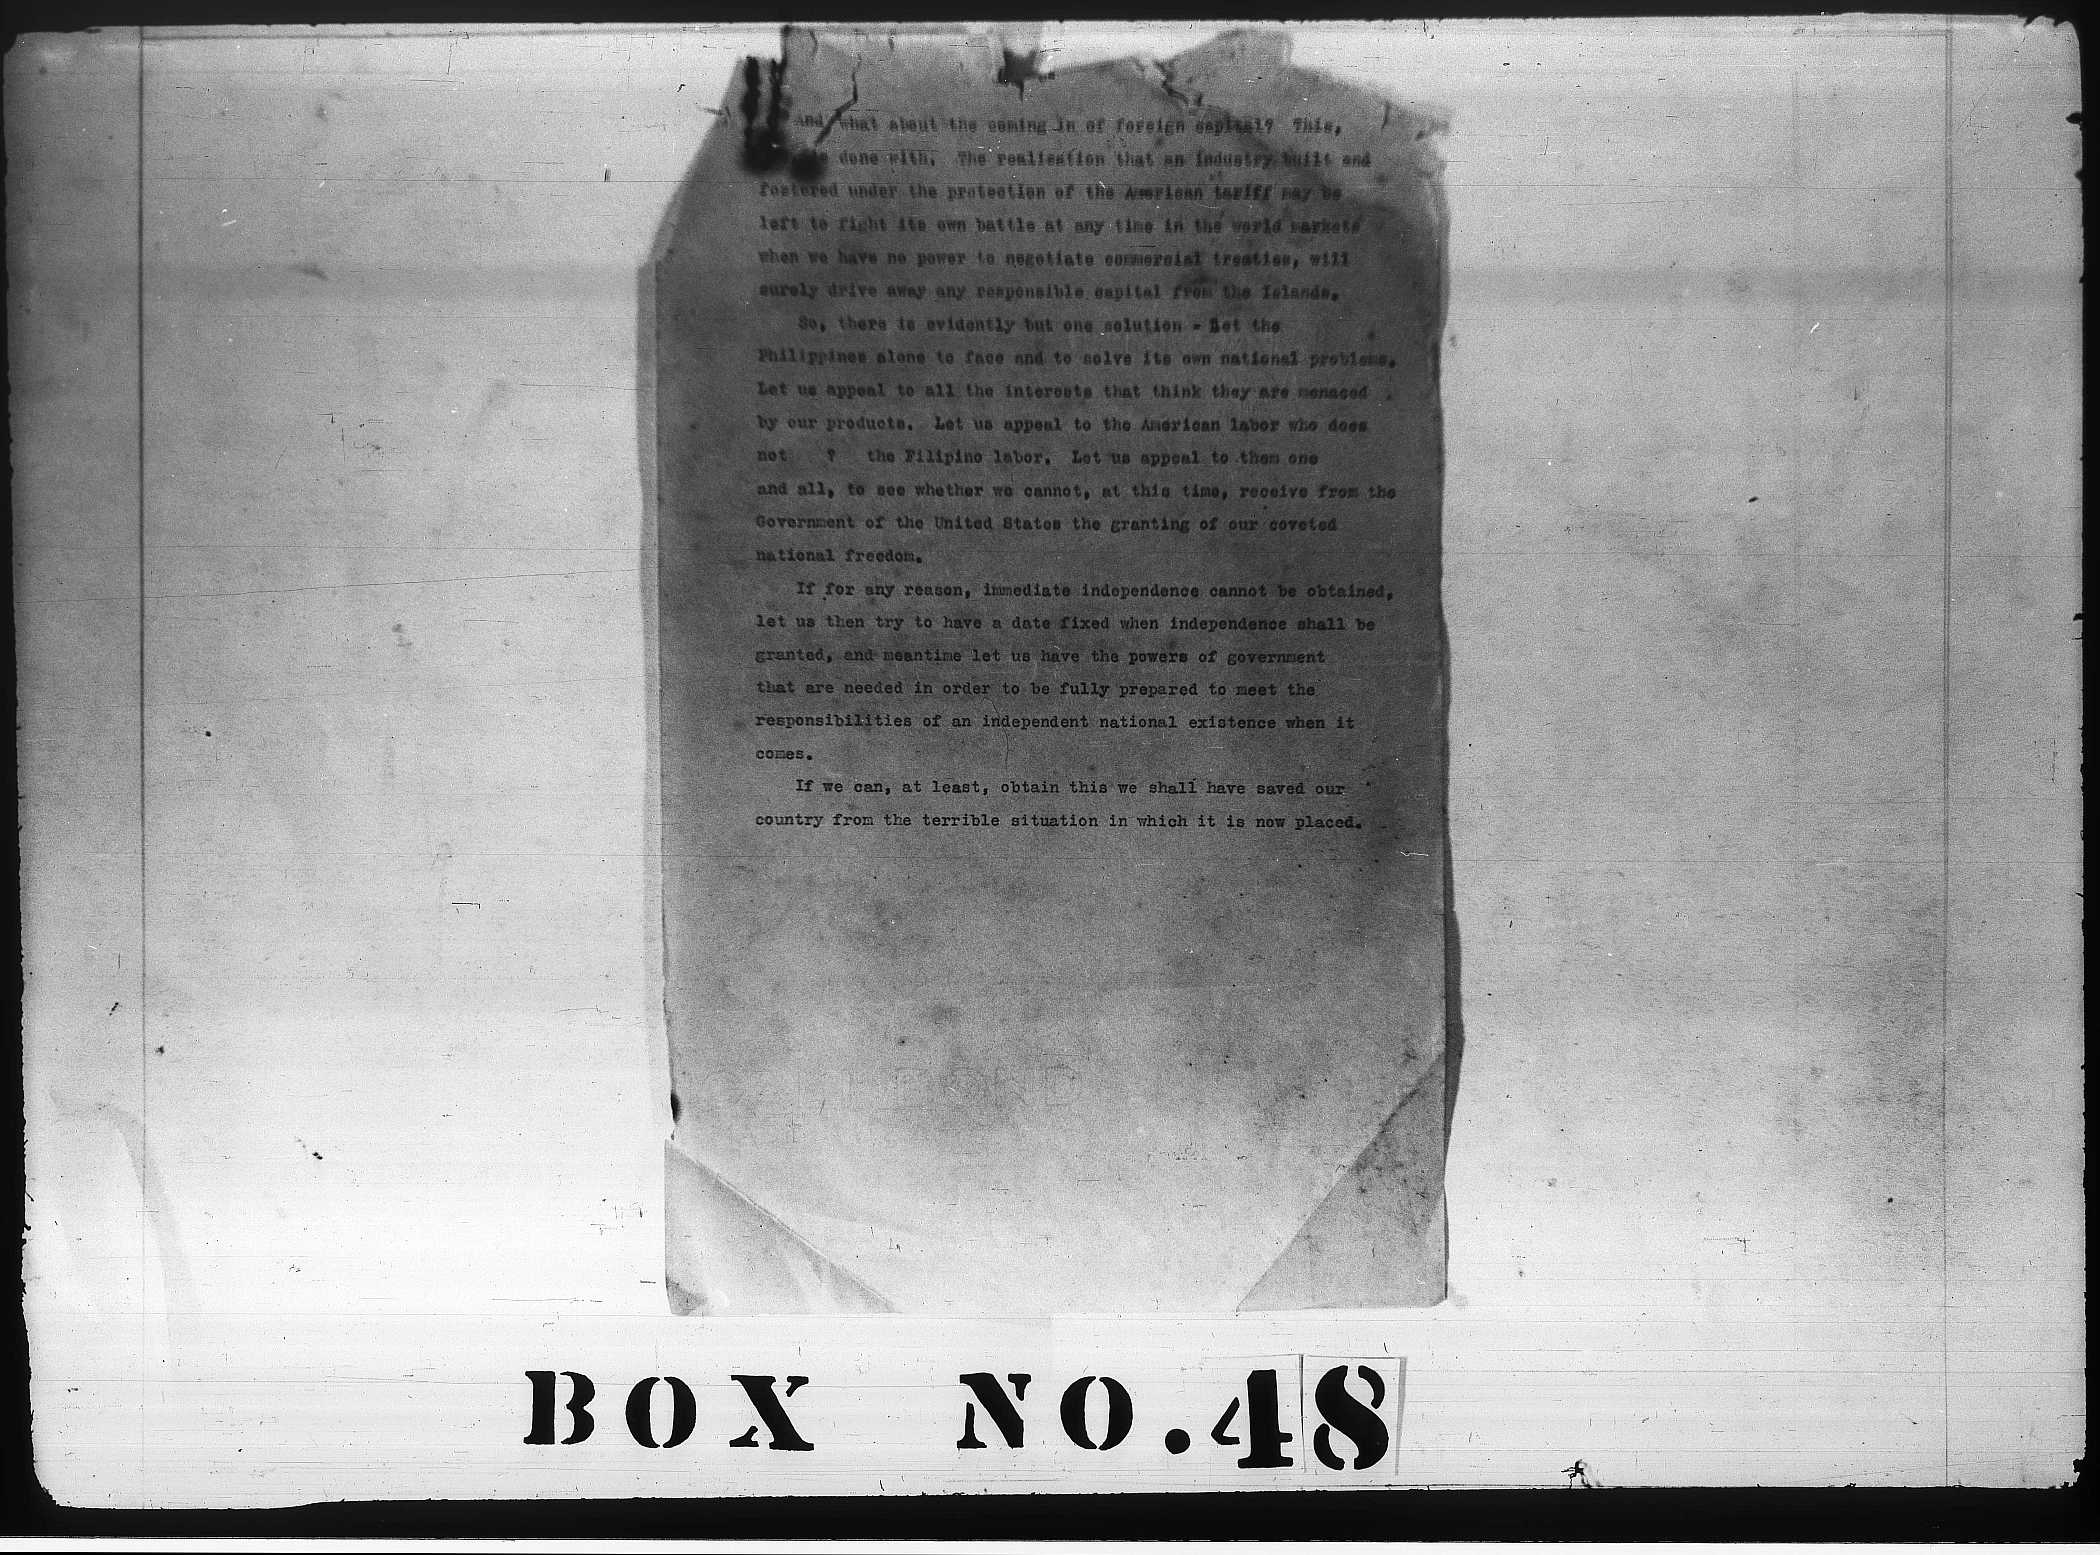 And, what about the coming in of foreign capital? This,
is done with. The realisation that an industry built and
fostered under the protection of the American tariff may be
left to fight its own battle at any time in the world markets
when we have no power to negotiate commercial treaties, will
surely drive away any responsible capital from the Islands.
So, there is evidently but one solution - Let the
Philippines alone to face and to solve its own national problems.
Let us appeal to all the interests that think they are menaced
by our products. Let us appeal to the American labor who does
not ? the Filipino labor. Let us appeal to them one
and all, to see whether we cannot, at this time, receive from the
Government of the United States the granting of our coveted
national freedom.
If for any reason, immediate independence cannot be obtained,
let us then try to have a date fixed when independence shall be
granted, and meantime let us have the powers of government
that are needed in order to be fully prepared to meet the
responsibilities of an independent national existence when it
comes.
If we can, at least, obtain this we shall have saved our
country from the terrible situation in which it is now placed.
BOX NO. 48